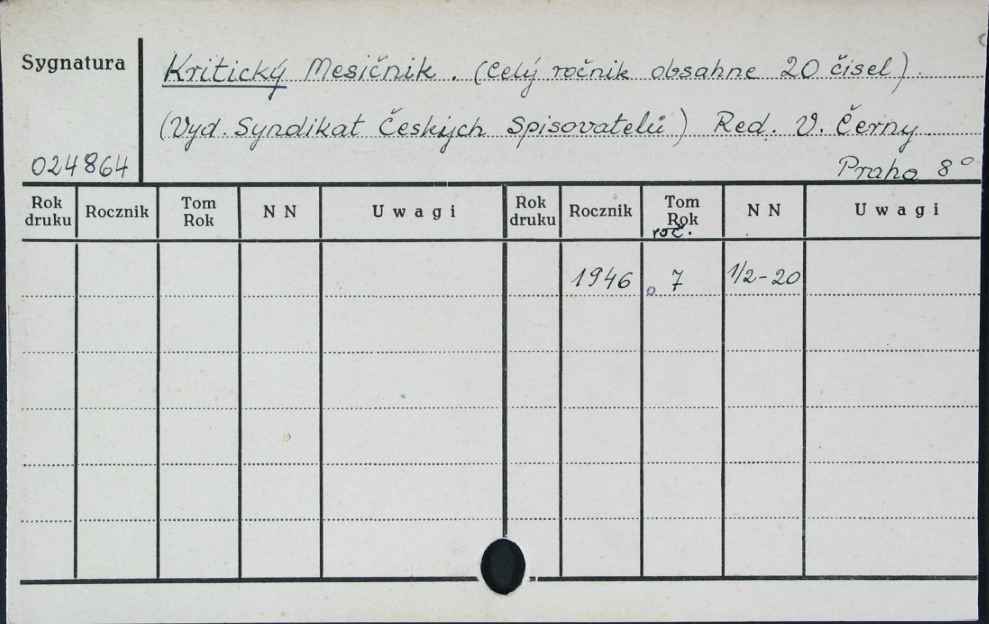 Sygnatura
Kritický Mesičnik. (Celý ročnik obsahne 20 čisel).
(Vyd. Syndikat Českých Spisovatelů) Red. V. Černy
024864
Praha 8°
Rok druku Rocznik Tom Rok N N Uwagi Rok druku Rocznik Tom Rok N N Uwagi
roč.
1946 7 1/2-20